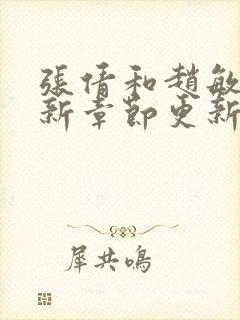 張倩和趙敏
新章節更新
犀共鳴